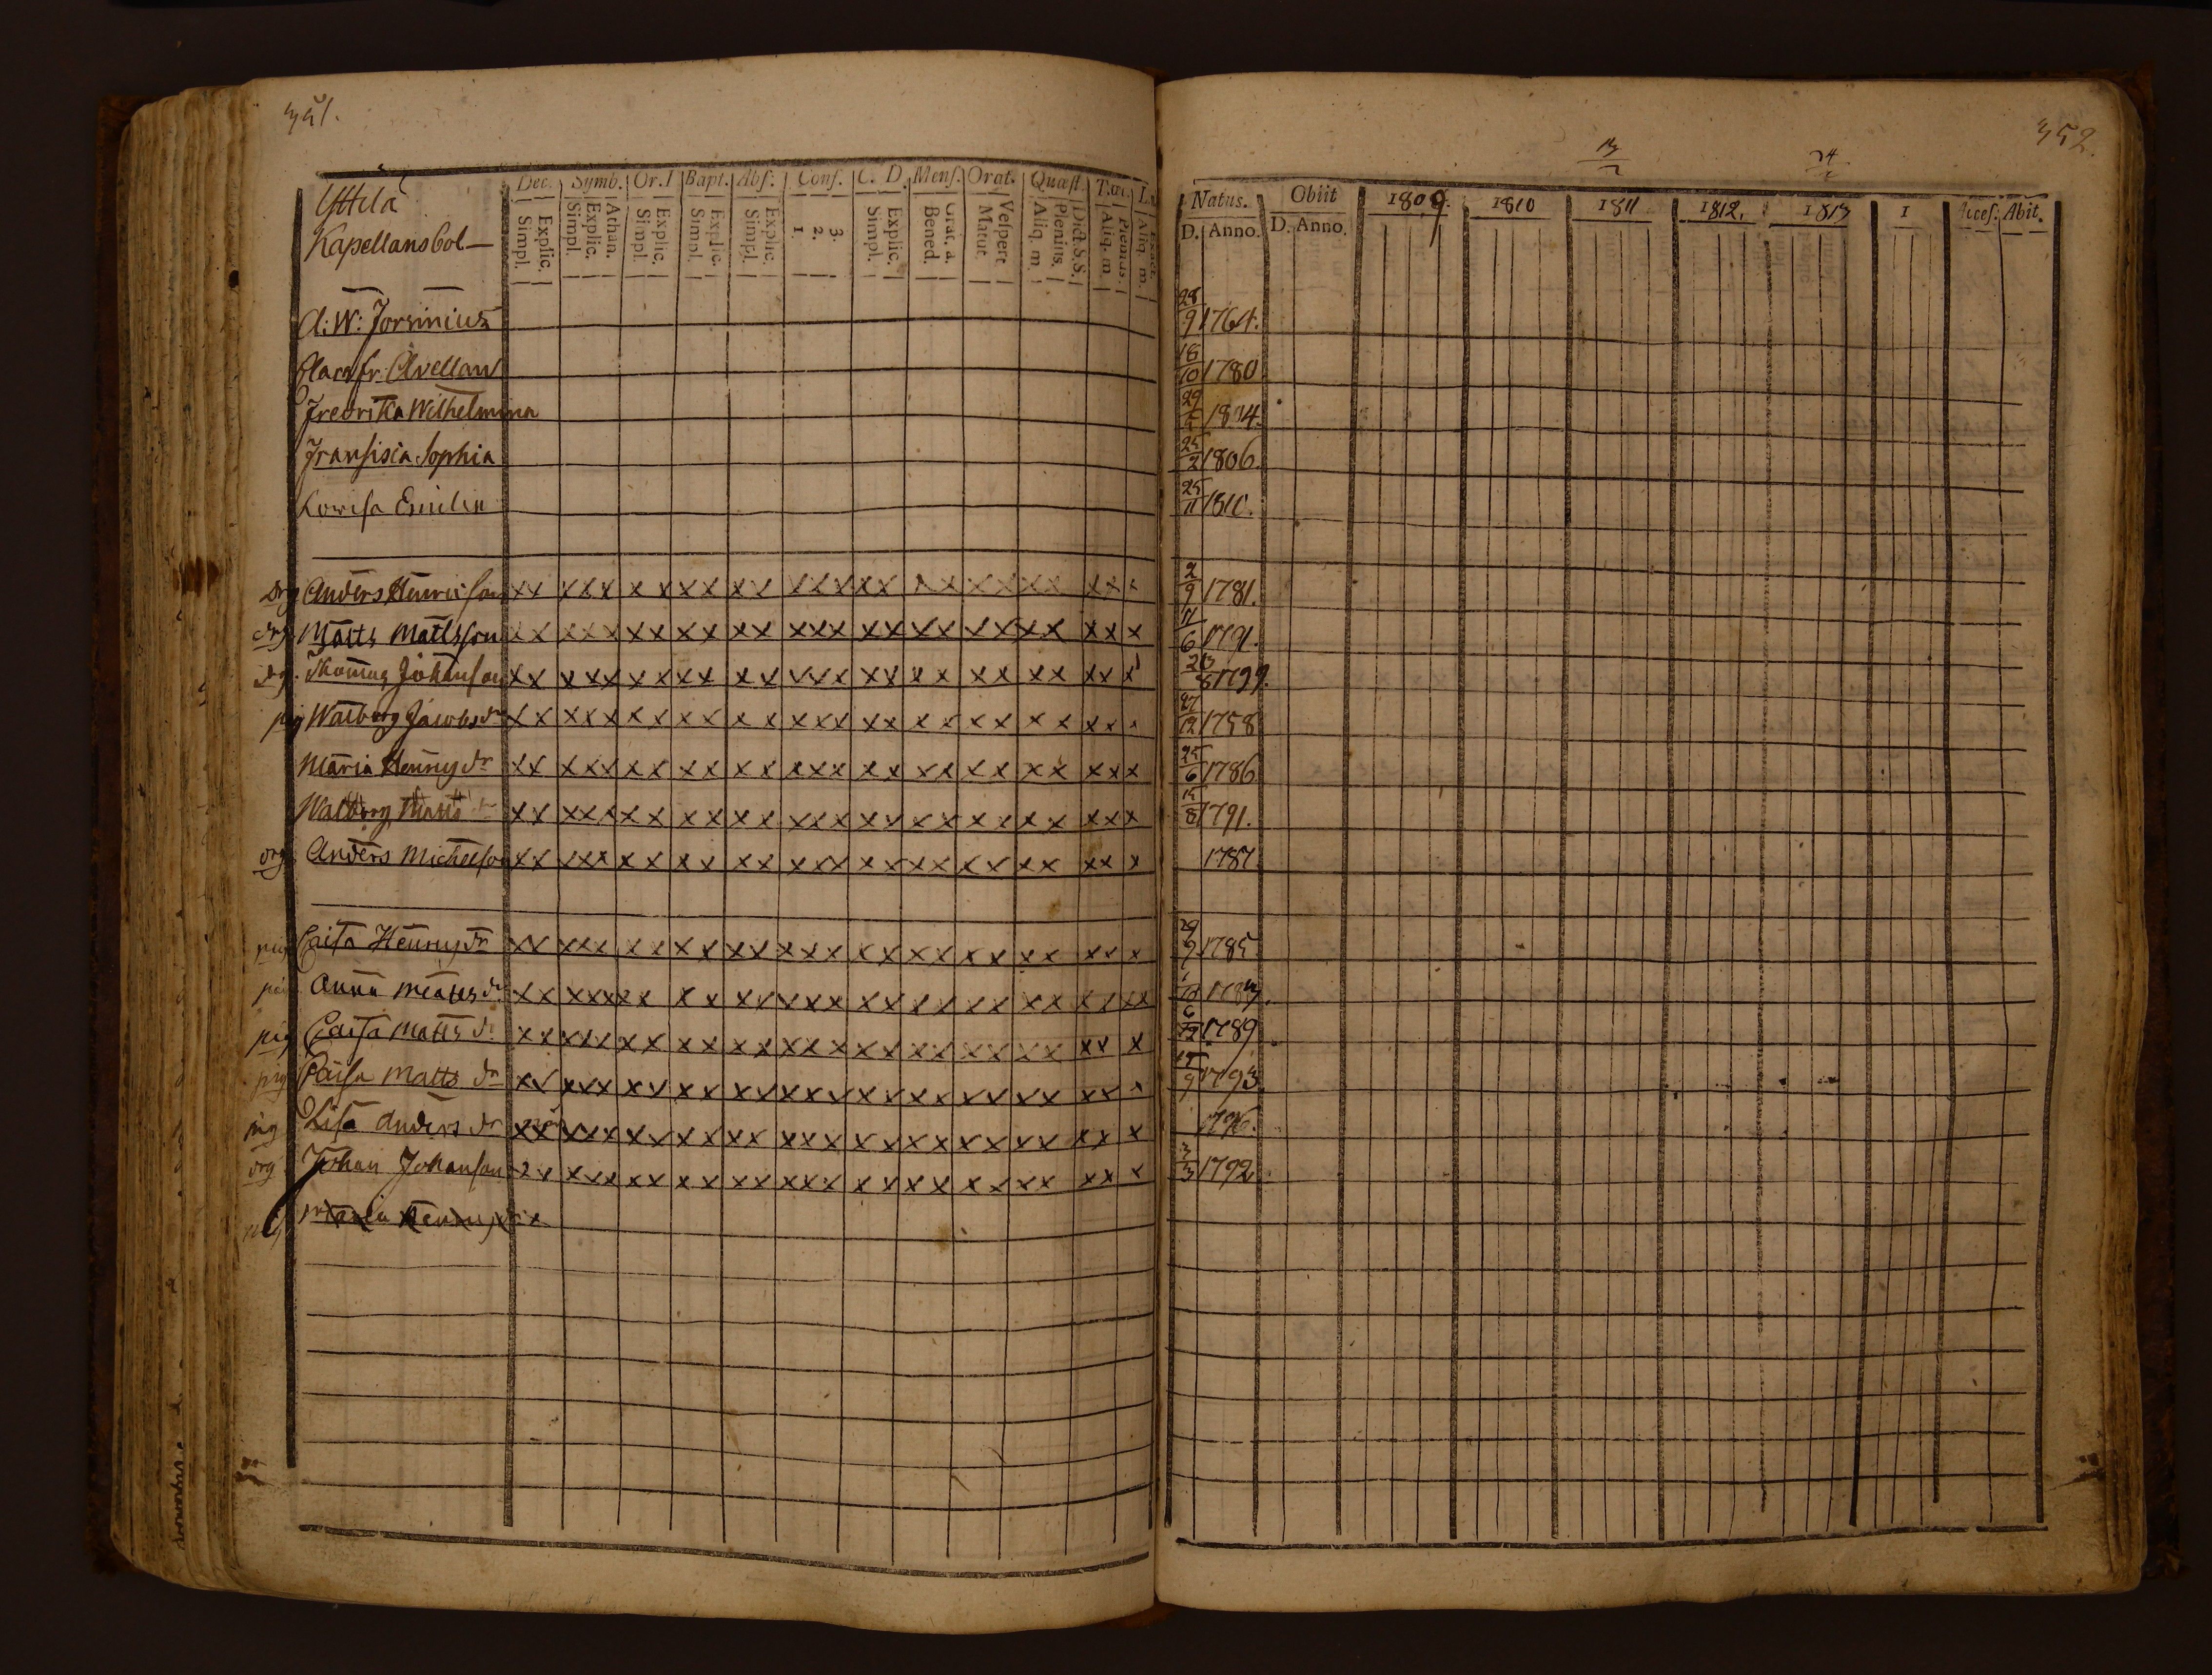 351.
Yttilä
Kapellansbol
Dec. Symb. Or. Bapt. Abs. Conf. C. D. Mens. Orat. Quæst.
Explic. Simpl. Athan. Explic. Simpl. Explic. Simpl. Explic. Simpl. Explic. Simpl. 3. 2. 1. Explic. Simpl. Bened. Vespert. Matut. Dict. S.S. Plenius. Aliq. m. Plenius. Aliq. m. Aliq. m.
A: W: Forsinius
Clara fr. Avellan
Fredrika Wilhelmina
Fransisca Sophia
Lovisa Emilia
drg Anders Henricson xx xxx xx xx xx xxx xx xx xx xx xx x
drg Matts Mattsson xx xxx xx xx xx xxx xx xx xx xx xx x
drg. Thomas Johanson xx xxx xx xx xx xxx xx xx xx xx xx x
pig Walborg Jacobs dr xx xxx xx xx xx xxx xx xx xx xx xx x
Maria Henrics dr xx xxx xx xx xx xxx xx xx xx xx xx x
Walborg Matts dr xx xxx xx xx xx xxx xx xx xx xx xx x
drg Anders Michelson xx xxx xx xx xx xxx xx xx xx xx xx x
pig Caisa Henrics dr xx xxx xx xx xx xxx xx xx xx xx xx x
pig Anna Matts dr xx xxx xx xx xx xxx xx xx xx xx xx xx
pig Caisa Matts dr xx xxx xx xx xx xxx xx xx xx xx xx x
pig Caisa Matts dr xx xxx xx xx xx xxx xx xx xx xx xx x
pig Lisa Anders dr xx xxx xx xx xx xxx xx xx xx xx xx x
drg Johan Johanson xx xxx xx xx xx xxx xx xx xx xx xx x
pig Maria Henrics dr
352.
Natus. Obiit 1809. 1810 1811 1812. 1813 1 Acces. Abit.
D. Anno. D. Anno.
28/9 1764.
18/10 1780
1804.
25/2 1806.
25/11 1810.
2/9 1781.
11/6 1791.
1799.
27/12 1758
25/6 1786
15/8 1791.
1787.
29/9 1785.
6/12 1789
15/9 1793
1796.
3/3 1792